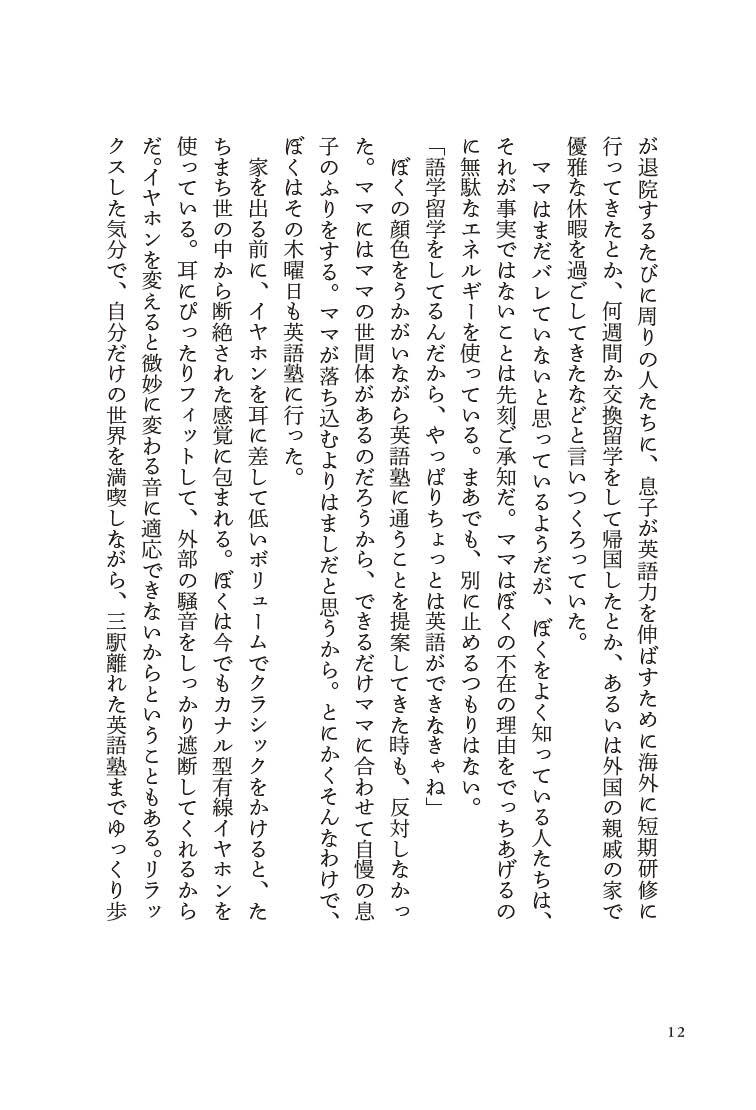 が退院するたびに周りの人たちに、息子が英語力を伸ばすために海外に短期研修に
行ってきたとか、何週間か交換留学をして帰国したとか、あるいは外国の親戚の家で
優雅な休暇を過ごしてきたなどと言いつくろっていた。
ママはまだバレていないと思っているようだが、ぼくをよく知っている人たちは、
それが事実ではないことは先刻ご承知だ。ママはぼくの不在の理由をでっちあげるの
に無駄なエネルギーを使っている。まあでも、別に止めるつもりはない。
「語学留学をしてるんだから、やっぱりちょっとは英語ができなきゃね」
ぼくの顔色をうかがいながら英語塾に通うことを提案してきた時も、反対しなかっ
た。ママにはママの世間体があるのだろうから、できるだけママに合わせて自慢の息
子のふりをする。ママが落ち込むよりはましだと思うから。とにかくそんなわけで、
ぼくはその木曜日も英語塾に行った。
家を出る前に、イヤホンを耳に差して低いボリュームでクラシックをかけると、た
ちまち世の中から断絶された感覚に包まれる。ぼくは今でもカナル型有線イヤホンを
使っている。耳にぴったりフィットして、外部の騒音をしっかり遮断してくれるから
だ。イヤホンを変えると微妙に変わる音に適応できないからということもある。リラッ
クスした気分で、自分だけの世界を満喫しながら、三駅離れた英語塾までゆっくり歩
12